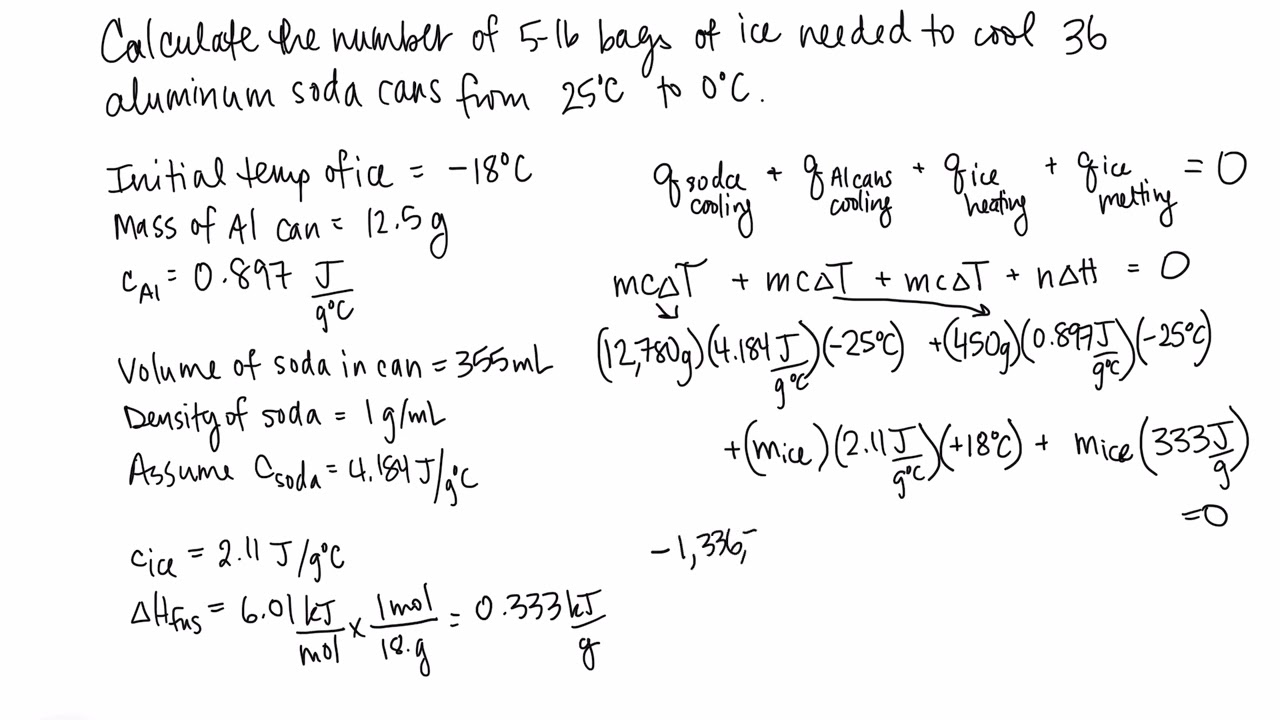 Calculate the number of 5-lb bags of ice needed to cool 36
aluminum soda cans from 25°C to 0°C.
Initial temp of ice = -18°C
Mass of Al can = 12.5 g
c_Al = 0.897 J/g°C
Volume of soda in can = 355 mL
Density of soda = 1 g/mL
Assume C_soda = 4.184 J/g°C
c_ice = 2.11 J/g°C
ΔH_fus = 6.01 kJ/mol × 1 mol/18.g = 0.333 kJ/g
q_soda cooling + q_Al cans cooling + q_ice heating + q_ice melting = 0
mcΔT + mcΔT + mcΔT + nΔH = 0
(12,780g)(4.184 J/g°C)(-25°C) + (450g)(0.897 J/g°C)(-25°C)
+ (m_ice)(2.11 J/g°C)(+18°C) + m_ice(333 J/g)
= 0
-1,336,